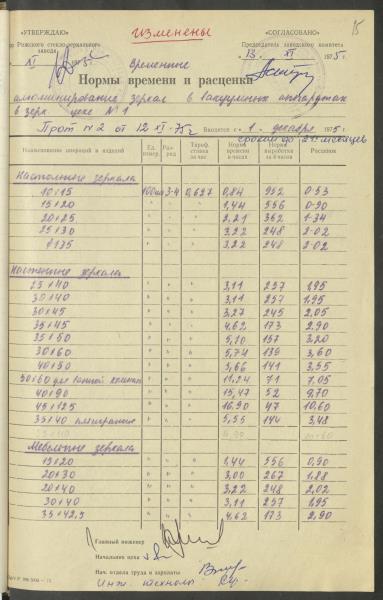 15
«УТВЕРЖДАЮ» изменены «СОГЛАСОВАНО»
Рижского стекло-зеркального завода Председатель заводского комитета
XI 13. XI 1975 г.
Временные
Нормы времени и расценки
алюминирование зеркал в вакуумных аппаратах
в зерк. цехе № 1
Прот № 2 от 12 XI-75г Вводятся с „1„ декабря 1975 г.
сроком до 2х месяцев
Наименование операций и изделий Ед. измер. Раз-ряд Тариф. ставка за час Норма времени в часах Норма выработки за 8 часов Расценки
Настольные зеркала
10×15 100шт 3-4 0,627 0,84 952 0-53
15×20 " " " 1,44 556 0-90
20×25 " " " 2,21 362 1-34
25×30 " " " 3,22 248 2-02
ø135 " " " 3,22 248 2-02
Настенные зеркала
25×40 " " " 3,11 257 1,95
30×40 " " " 3,11 257 1,95
30×45 " " " 3,27 245 2,05
35×45 " " " 4,62 173 2,90
35×50 " " " 5,10 157 3,20
30×60 " " " 5,74 139 3,60
40×50 " " " 5,66 141 3,55
50×60 для ванной комнаты " " " 11,24 71 7,05
40×90 " " " 15,47 52 9,70
45×125 " " " 16,90 47 10,60
35×40 " " " 5,55 144 3,48
Мебельные зеркала
15×20 " " " 1,44 556 0,90
20×30 " " " 3,00 267 1,88
20×40 " " " 3,22 248 2,02
30×40 " " " 3,11 257 1,95
35×42,5 " " " 4,62 173 2,90
Главный инженер
Начальник цеха
Нач. отдела труда и зарплаты
Инж. технолог